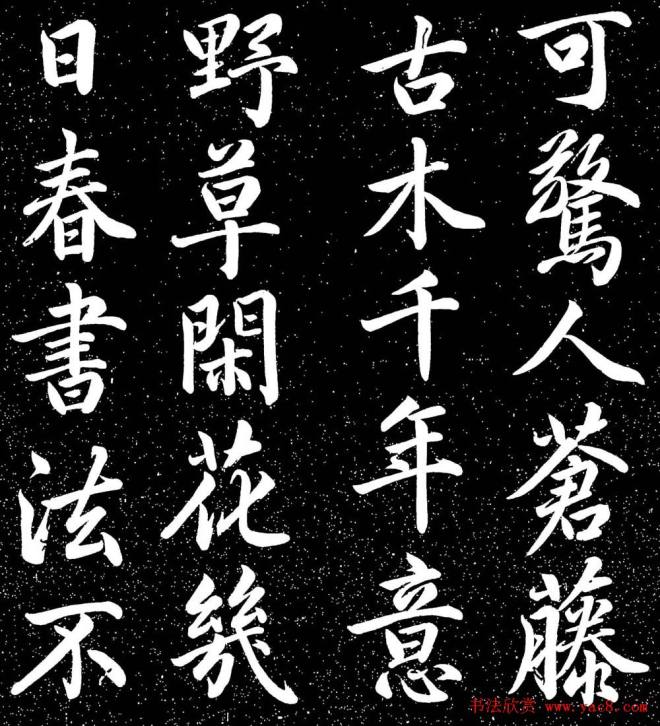 可驚人蒼藤
古木千年意
野草閑花幾
日春書法不
书法欣赏 www.yac8.com